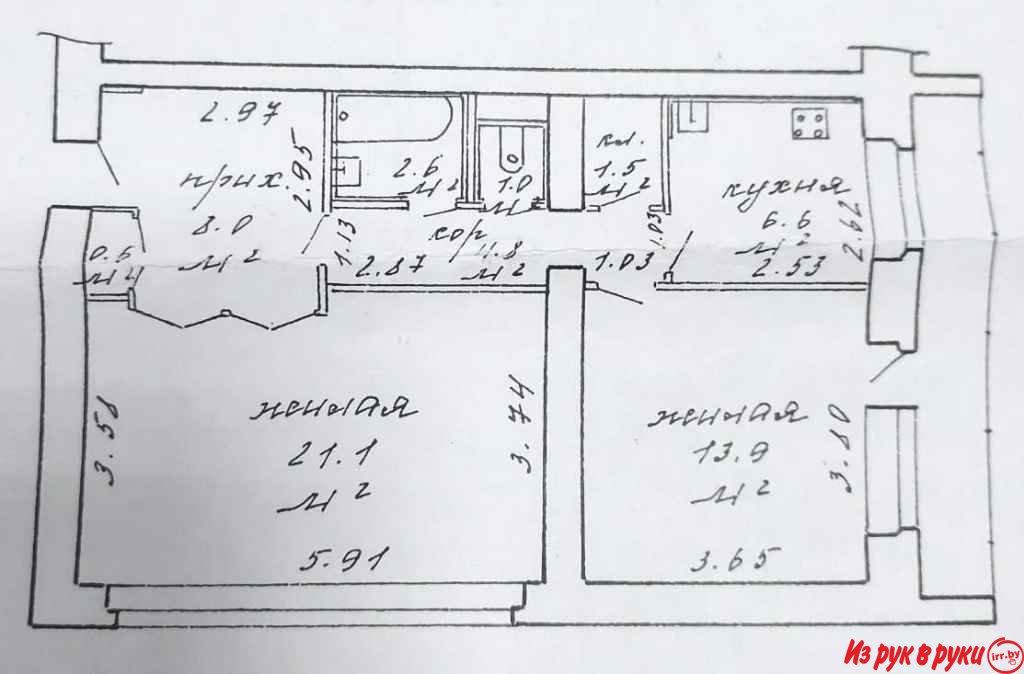 2.97
2.95
прих.
8.0
м²
2.6
м²
1.0
м
кл.
1.5
м²
кухня
6.6
м²
2.62
2.53
1.13
кор
4.8
м²
2.87
1.03
1.03
0.6
жилая
21.1
м²
3.58
3.74
5.91
жилая
13.9
м²
3.80
3.65
Из рук в руки
irr.by